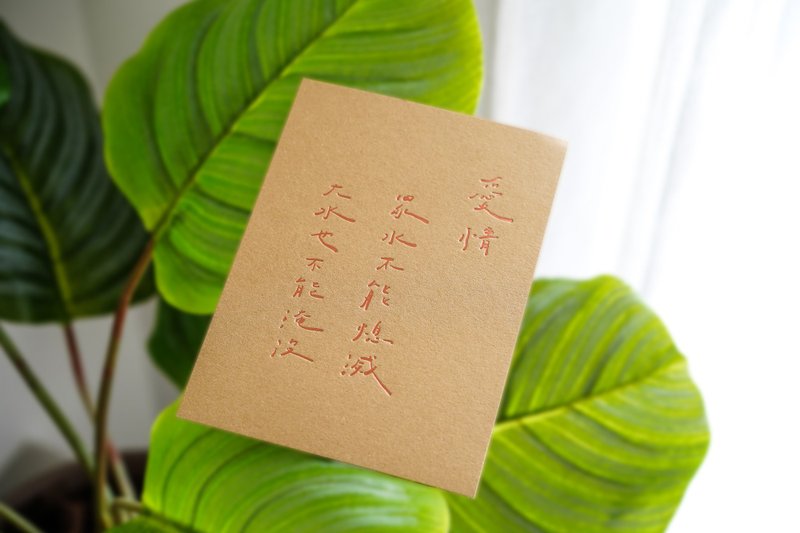 愛情
眾水不能熄滅
大水也不能淹沒